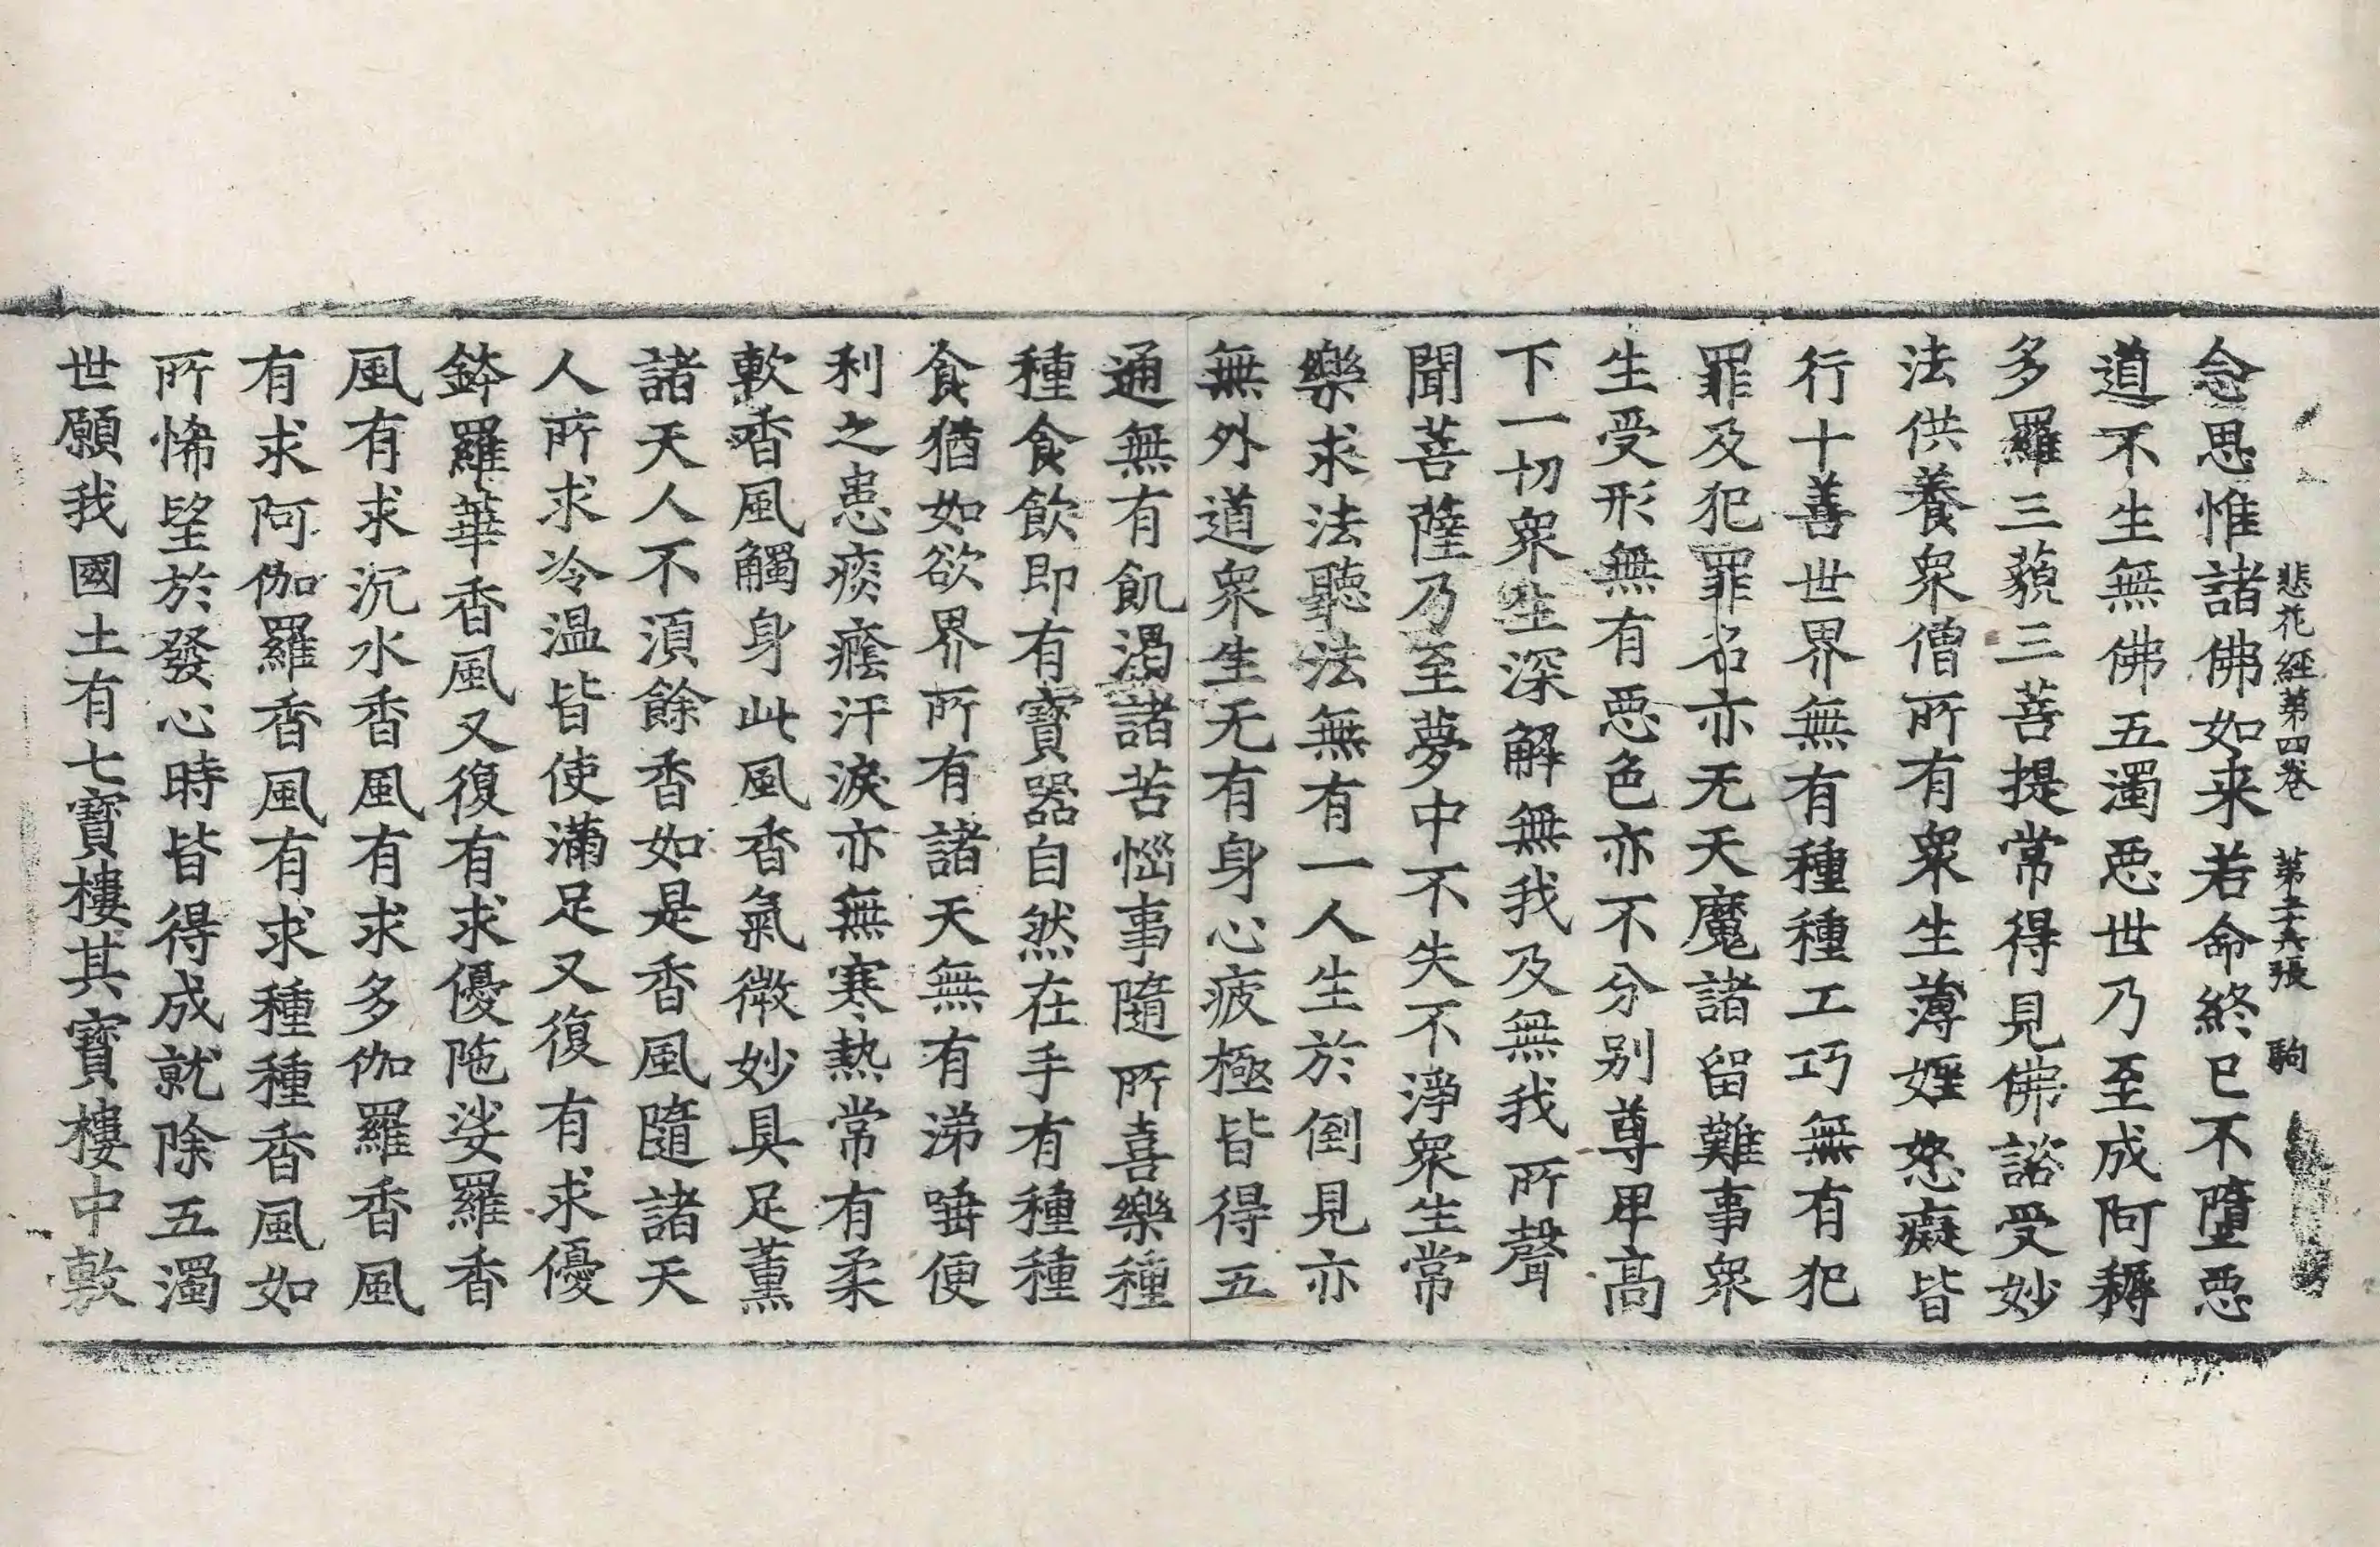 悲花經第四卷　第二十六張　駒
念思惟諸佛如来若命終已不墮惡
道不生無佛五濁惡世乃至成阿耨
多羅三藐三菩提常得見佛諮受妙
法供養衆僧所有衆生薄婬怒癡皆
行十善世界無有種種工巧無有犯
罪及犯罪名亦无天魔諸留難事衆
生受形無有惡色亦不分別尊卑高
下一切衆生深解無我及無我所聲
聞菩薩乃至夢中不失不淨衆生常
樂求法聽法無有一人生於倒見亦
無外道衆生无有身心疲極皆得五
通無有飢渴諸苦惱事隨所喜樂種
種食飲即有寶器自然在手有種種
食猶如欲界所有諸天無有涕唾便
利之患痰癊汗淚亦無寒熱常有柔
軟香風觸身此風香氣微妙具足薰
諸天人不湏餘香如是香風隨諸天
人所求冷温皆使滿足又復有求優
鉢羅華香風又復有求優陁娑羅香
風有求沉水香風有求多伽羅香風
有求阿伽羅香風有求種種香風如
所悕望於發心時皆得成就除五濁
世願我國土有七寶樓其寶樓中敷